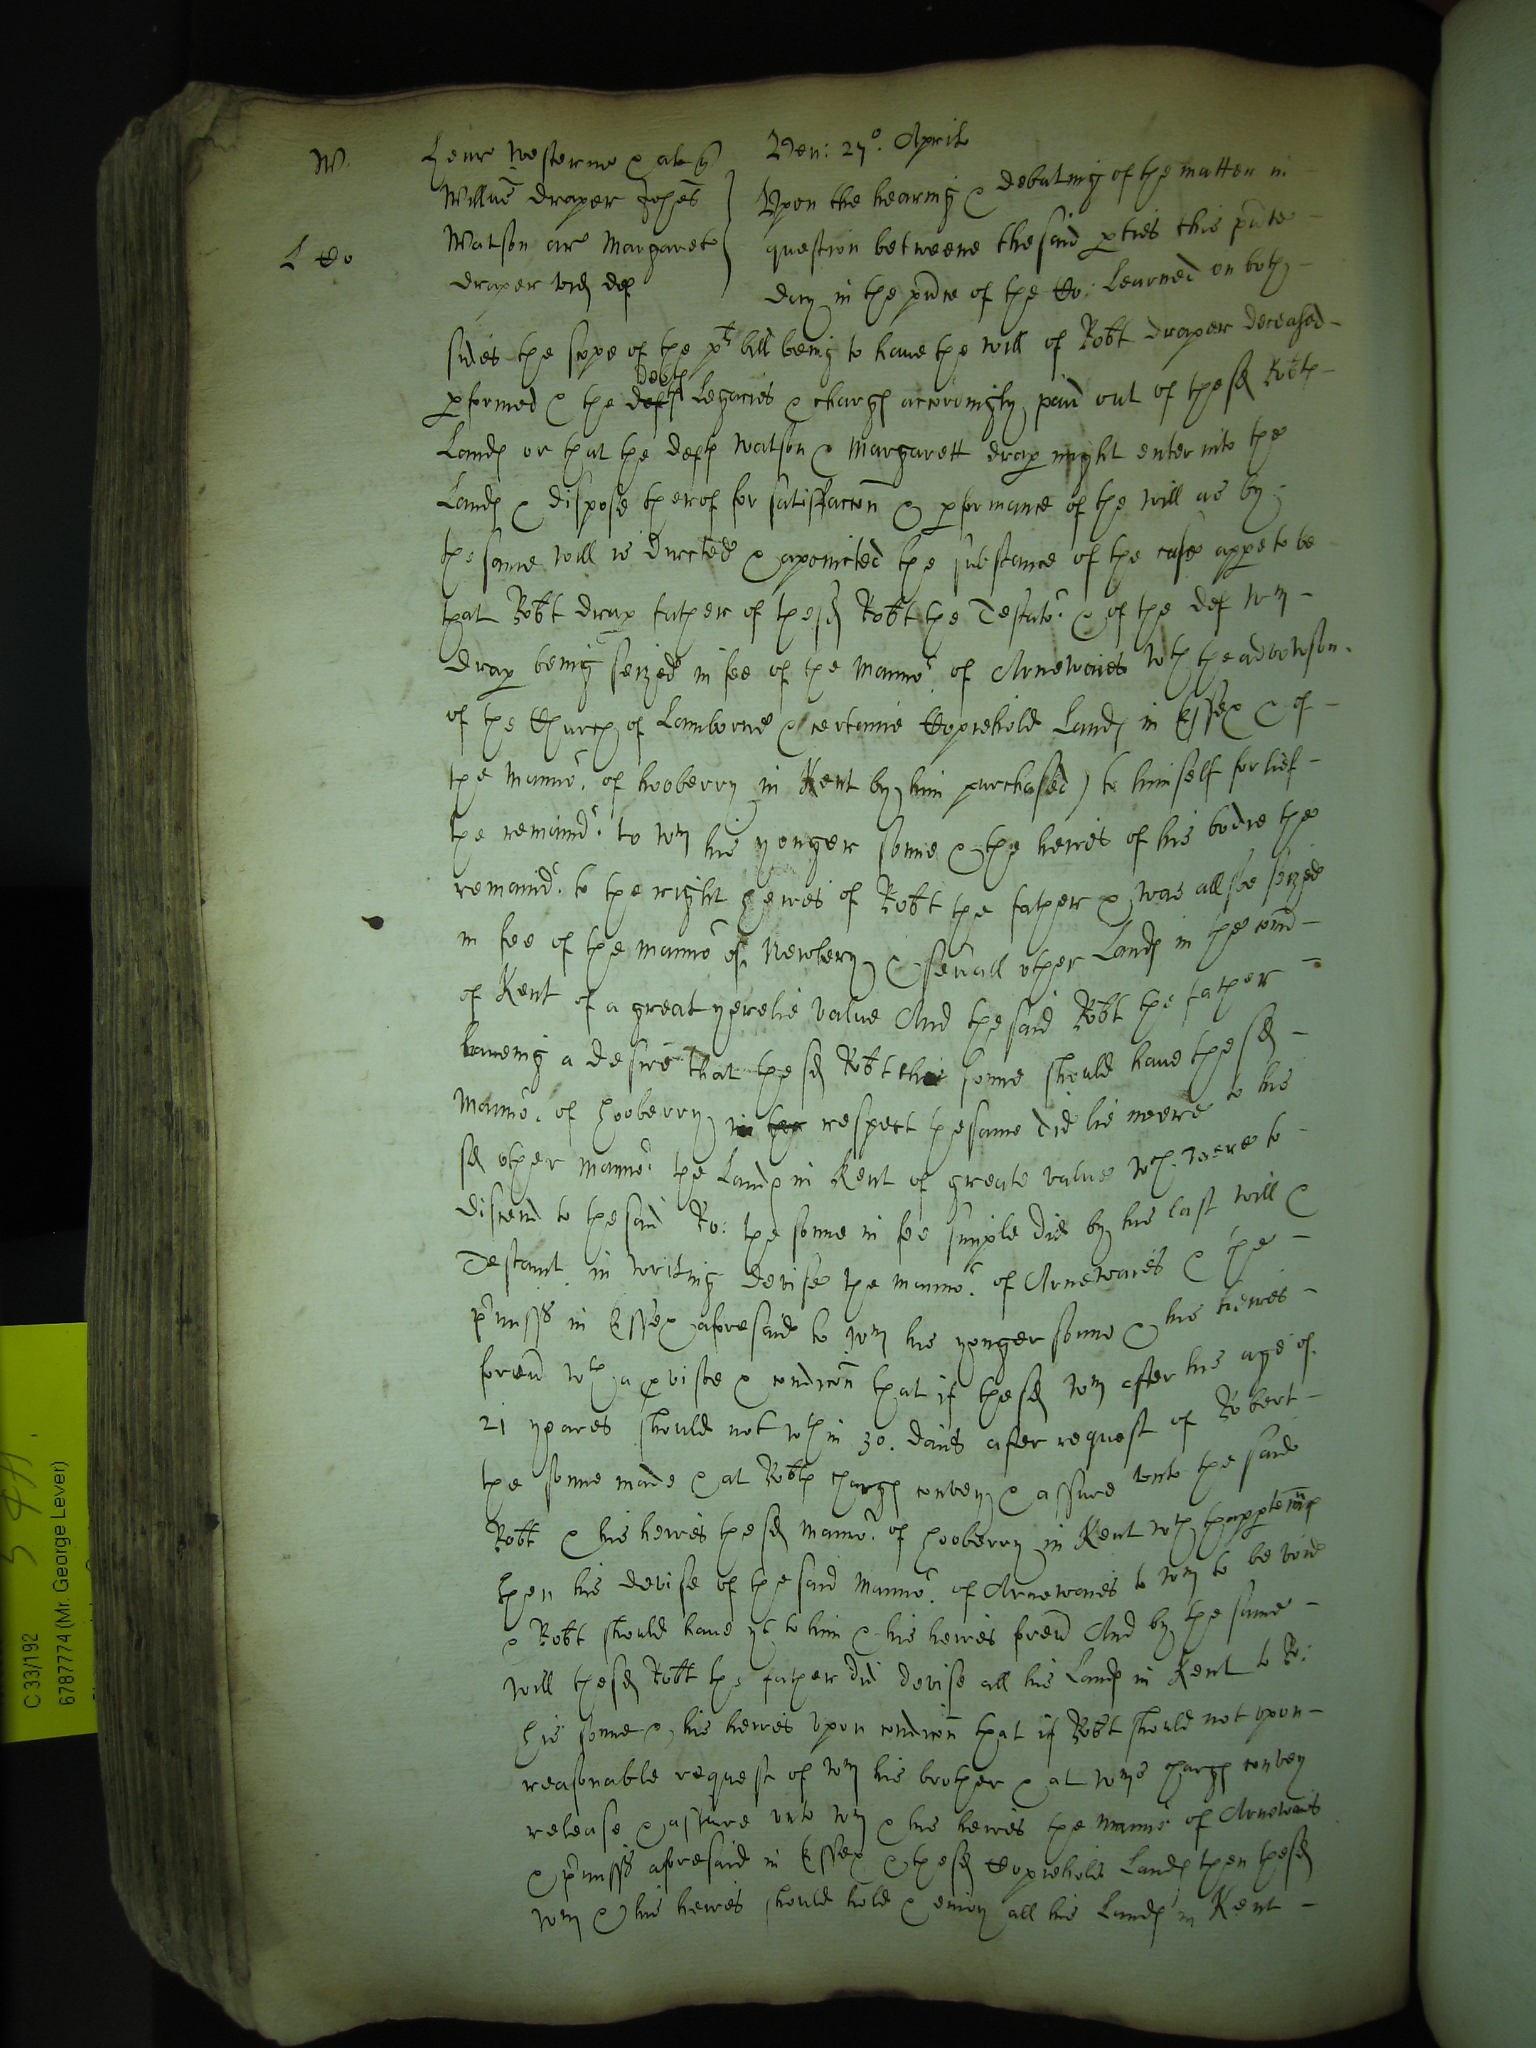 W. Henr Westerne & al qu Ven: 27º. Aprile
Willus draper Johes Upon the hearing & debating of the matter in
L Co Watson ar Margarete question betweene the said pties this pnte
draper vid deft day in the pnce of the Co: Learned on both
sides the scope of the pts bill being to have the will of Robt draper deceased
pformed & the debts Legacies & charges accordingly paid out of the sd Robts
Lands or that the defts Watson & Margarett drap might enter into the
Lands & dispose therof for satisfaccon & pformance of the will as by
the same will is directed & apointed the substance of the case appe to be
that Robt drap father of the sd Robt the Testator & of the def Wm
drap being seized in fee of the mannor of Arnewaies wth the advowson
of the Church of Lamborne & certaine Copiehold Lands in Essex & of
the mannor. of hooberry in Kent by him purchased) to himself for lief
the remaindr. to Wm his yonger sonne & the heires of his bodie the
remaindr. to the right heires of Robt the father & was allsoe seized
in fee of the mannor of Newbery & sevall other Lands in the com
of Kent of a great yerelie value And the said Robt the father
haveing a desire that the sd Robt the sonne should have the sd
mannor. of hooberry in respect the same did lie neere to his
sd other mannor. the Lands in Kent of greate value wch. were to
discend to the said Ro: the sonne in fee simple did by his last will &
Testamt. in writing devise the mannor. of Arnewaies & the
pmisss in Essex aforesaid to Wm his yonger sonne & his heires
forevr wth a pviso & condicon that if the sd Wm after his age of
21 yeares should not wthin 30. daies after request of Robert
the sonne made & at Robts charges convey & assure unto the said
Robt & his heires the sd mannor. of hooberry in Kent wth thapptennces
then his devise of the said mannor. of Arnewaies to Wm to be void
& Robt should have yt to him & his heires forevr And by the same
will the sd Robt the father did devise all his Lands in Kent to Ro:
his sonne & his heires upon condicon that if Robt should not upon
reasonable request of Wm his brother & at Wms charges convey
release & assure unto Wm & his heires the mannor of Arnewaies
& pmisss aforesaid in Essex & the sd Copiehold Lands then the sd
Wm & his heires should hold & enioy all his Lands in Kent
C 33/192
6787774 (Mr. George Lever)